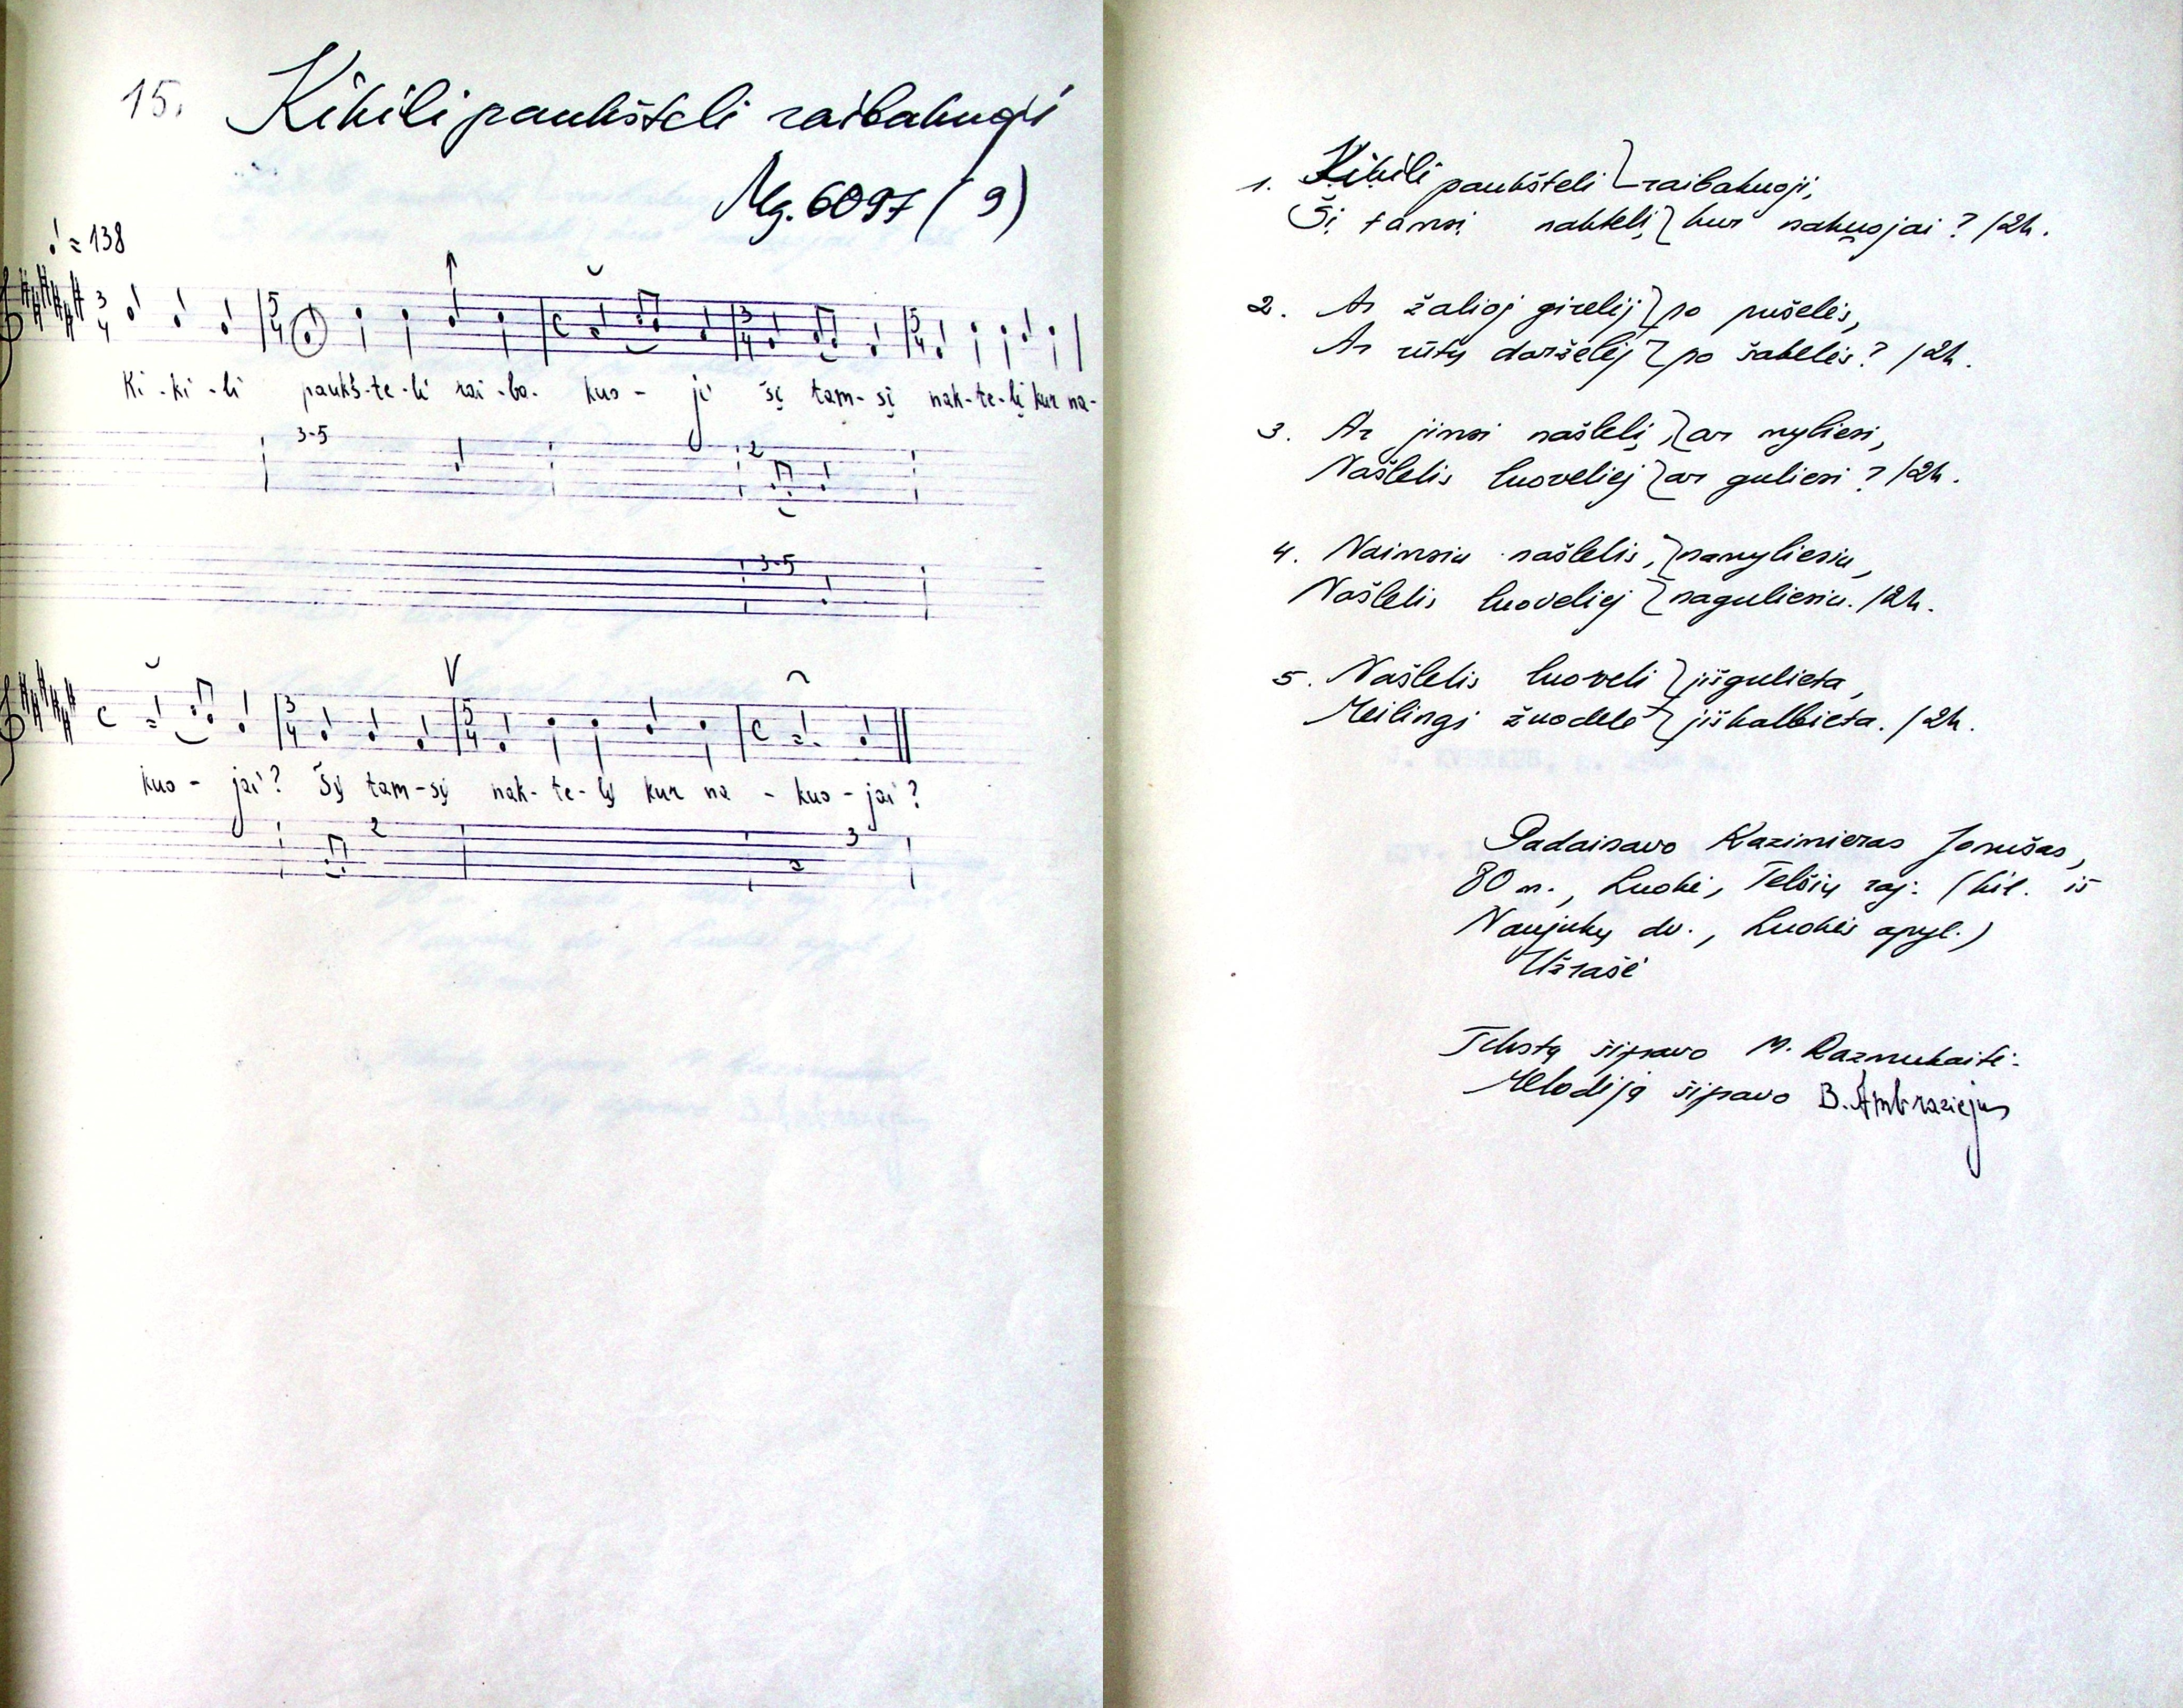 15. Kikili paukšteli raibakuoji
Mg. 6097 (9)
♩ = 138
3 4 5 4 C 3 4 5 4
Ki - ki - li paukš-te-li rai-ba- kuo - ji šį tam-sį nak-te-lį kur na-
3-5 2
3-5
V
C 3 4 5 4 C
kuo - jai? Šį tam-sį nak-te-lį kur na - kuo-jai?
2 3
1. Kikili paukšteli } raibakuoji,
Šį tamsį naktelį } kur nakuojai? /2k.
2. Ar žalioj girelėj } po pušelės,
Ar rūtų darželėj } po šakelės? /2k.
3. Ar jimsi našlelį, } ar myliesi,
Našlelis luoveliej } ar guliesi? /2k.
4. Naimsiu našlelis, } namyliesiu,
Našlelis luoveliej } naguliesiu. /2k.
5. Našlelis luoveli } jišgulieta,
Meilingi žuodele } jiškalbieta. /2k.
Padainavo Kazimieras Jonušas,
80 m., Luokė, Telšių raj. (kil. iš
Naujukų dv., Luokės apyl.)
Užrašė
Tekstą šifravo M. Razmukaitė.
Melodiją šifravo B. Ambraziejus